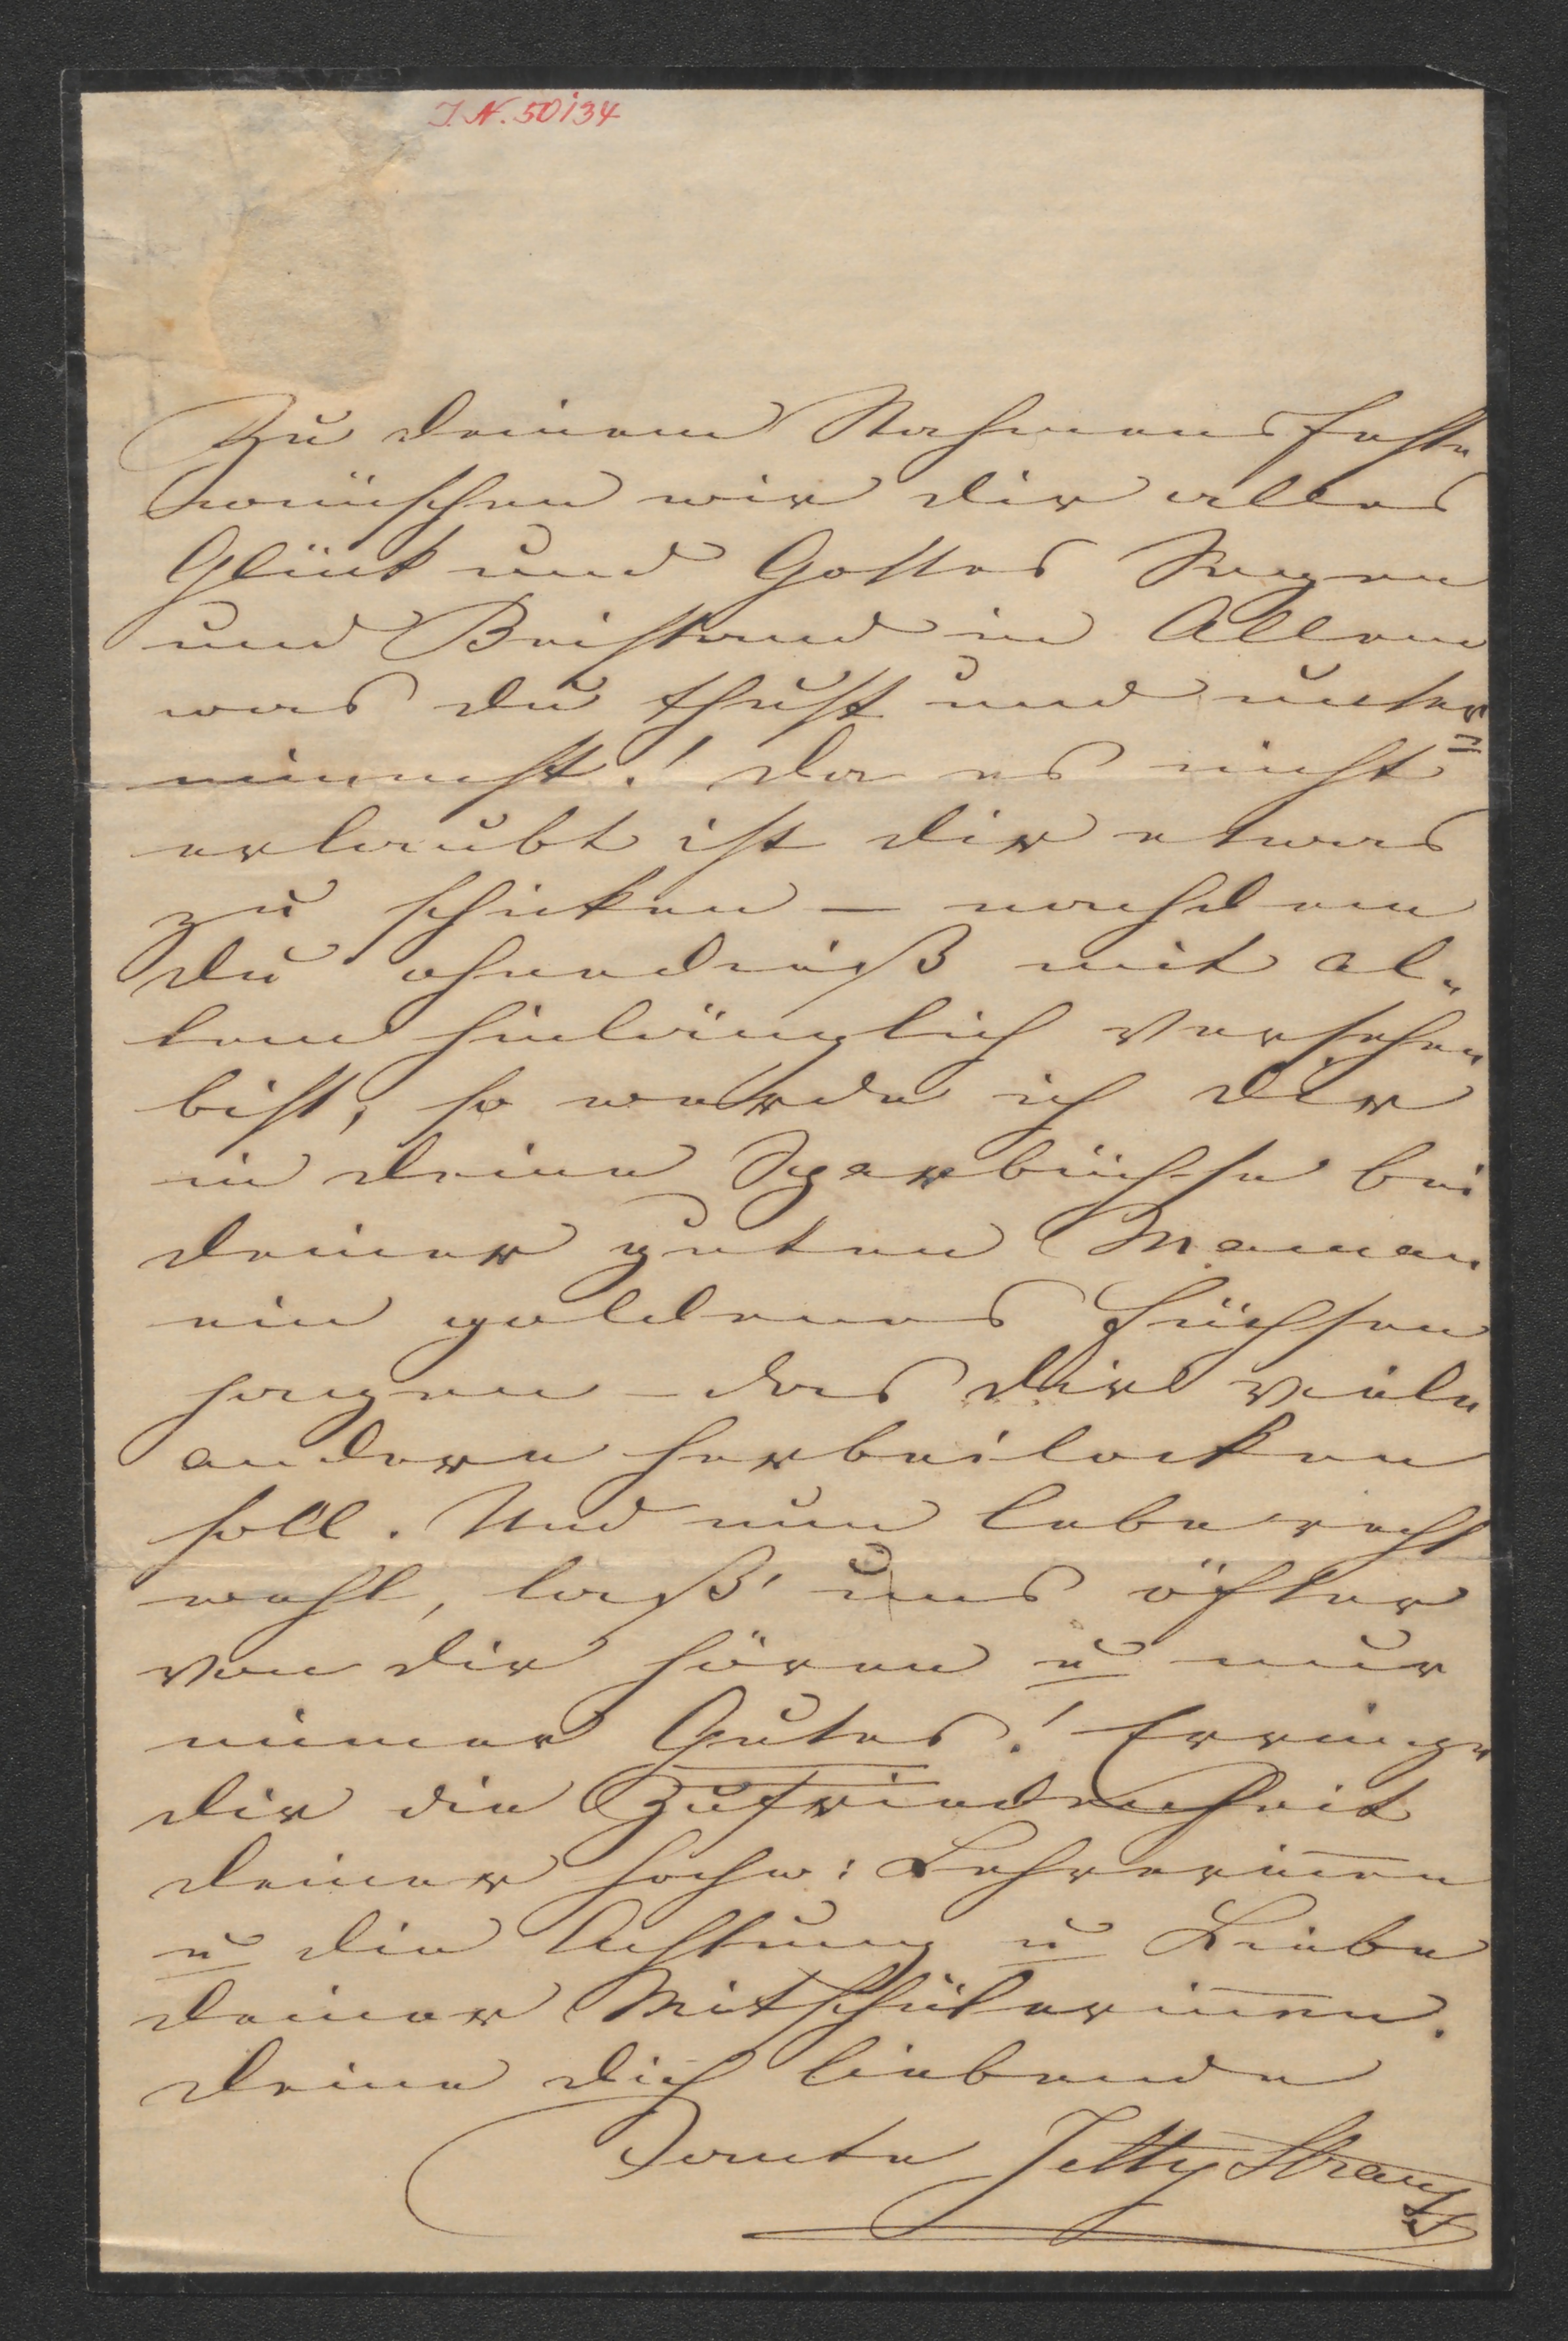 J.N. 50134
Zu deinem Nahmensfeste
wünschen wir dir alles
Glück und Gottes Segen
und Beistand in Allem
was du thust und unter=
nimmst! da es nicht
erlaubt ist dir etwas
zu schicken – nachdem
du ohnedieß mit al-
lem hinlänglich versehen
bist, so werde ich dir
in deine Sparbüchse bei
deiner guten Maman
ein goldenes Füchsen
hangen – das dir viele
andere herbeilocken
soll. Und nun lebe recht
wohl, laß' uns öfter
von dir hören u nur
immer Gutes! Erringe
dir die Zufriedenheit
deiner hochw: Lehrerinen
u die Achtung u Liebe
deiner Mitschülerinen.
deine dich liebende
Tante Jetty Strauß